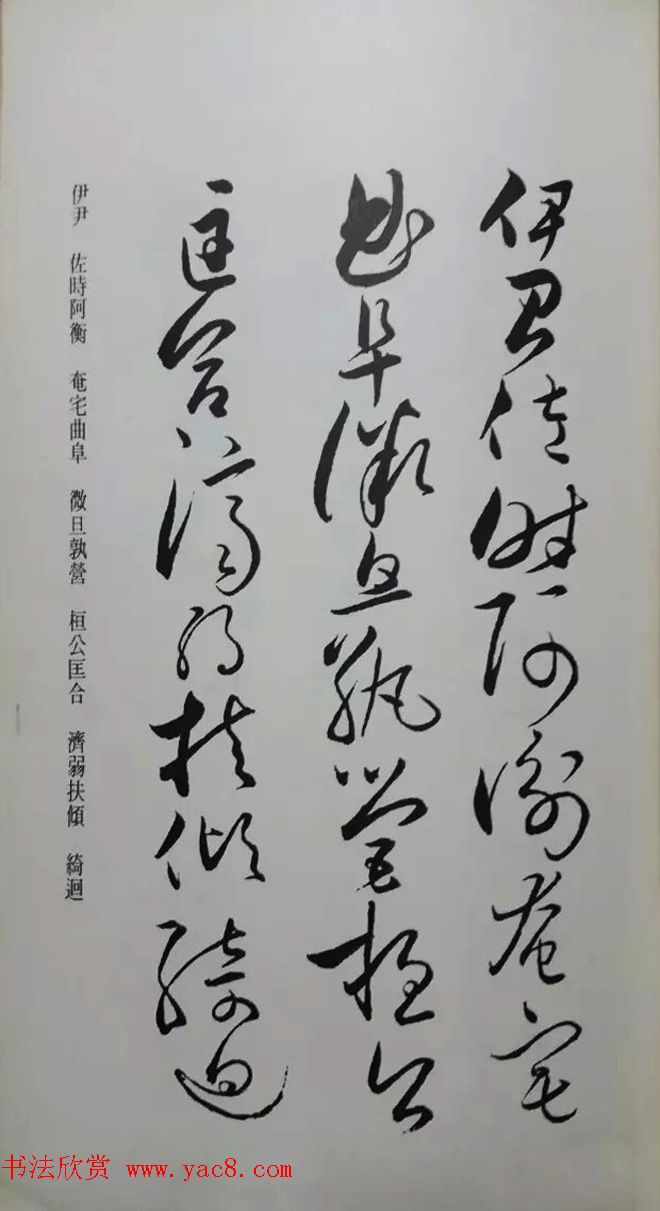 伊尹佐時阿衡奄宅
曲阜微旦孰營桓公
匡合濟弱扶傾綺迴
伊尹　佐時阿衡　奄宅曲阜　微旦孰營　桓公匡合　濟弱扶傾　綺迴
书法欣赏 www.yac8.com